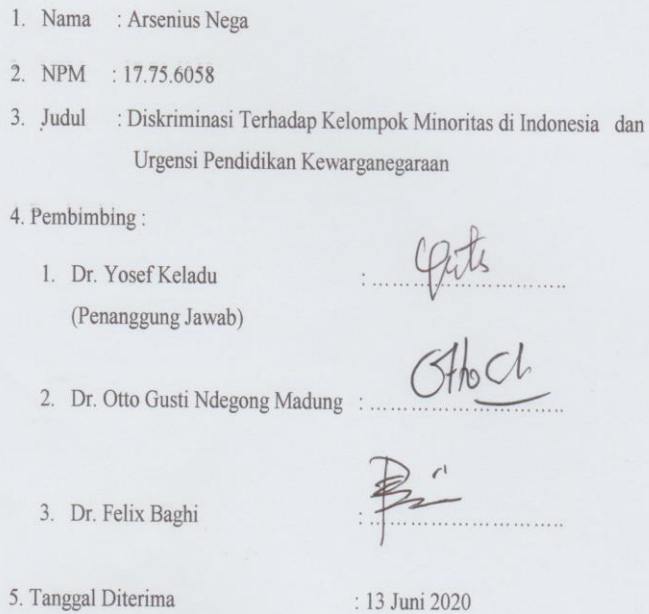 1. Nama : Arsenius Nega
2. NPM : 17.75.6058
3. Judul : Diskriminasi Terhadap Kelompok Minoritas di Indonesia dan
Urgensi Pendidikan Kewarganegaraan
4. Pembimbing :
1. Dr. Yosef Keladu : ..............................
(Penanggung Jawab)
2. Dr. Otto Gusti Ndegong Madung : ..............................
3. Dr. Felix Baghi : ..............................
5. Tanggal Diterima : 13 Juni 2020